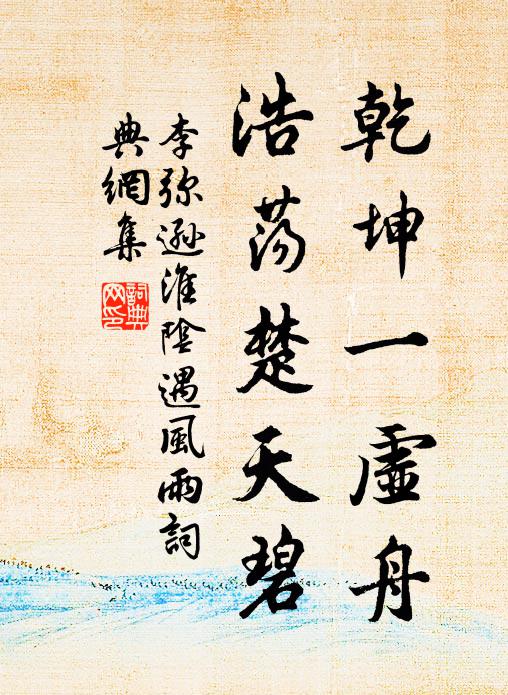 乾坤一虛舟
浩荡楚天碧
李弥遜淮陰遇風雨詞
典網集
詞典網印